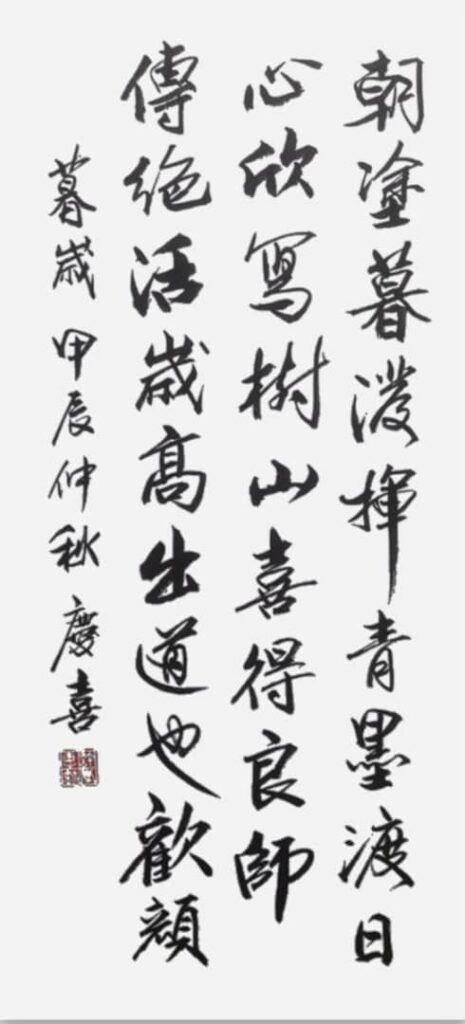 朝塗暮潑揮青墨渡日
心欣寫樹山喜得良師
傳絶活歲高出道也歡顏
暮歲 甲辰仲秋 慶喜